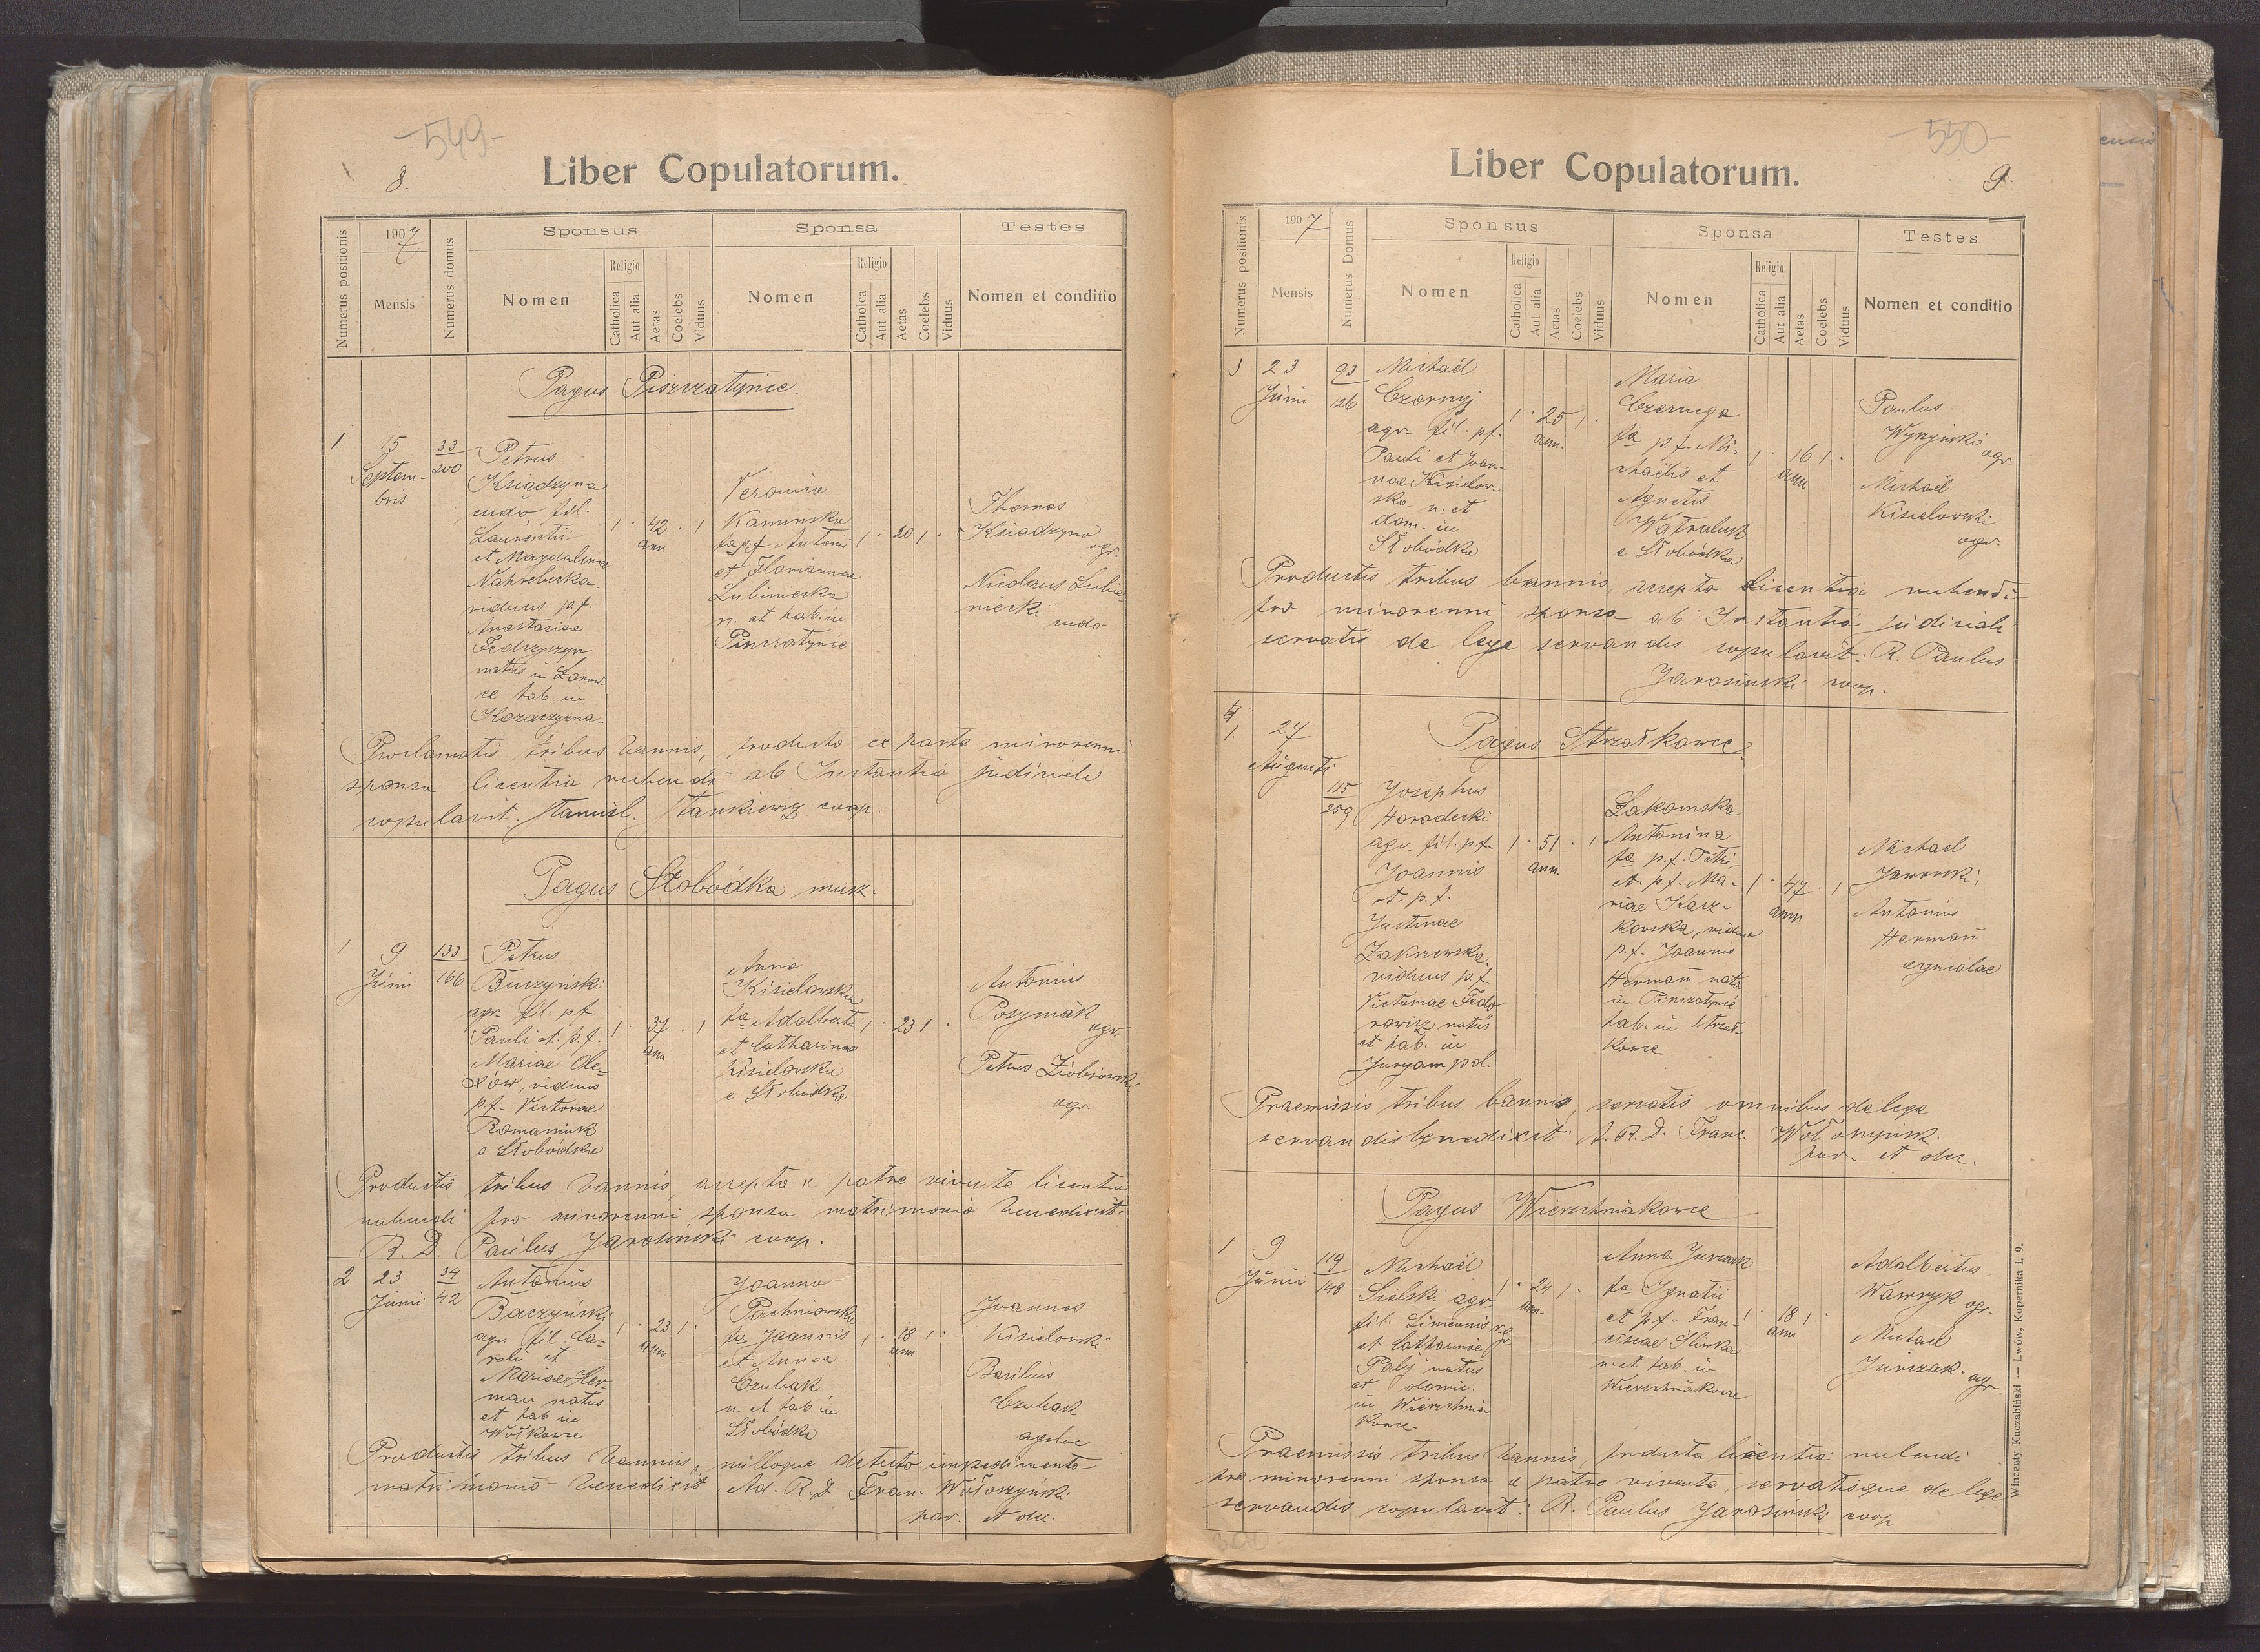 -549-
8.
Liber Copulatorum.
Numerus positionis
1907
Mensis
Numerus domus
Sponsus
Nomen
Religio
Catholica
Aut alia
Aetas
Coelebs
Viduus
Sponsa
Nomen
Religio
Catholica
Aut alia
Aetas
Coelebs
Viduus
Testes
Nomen et conditio
Pagus Piszczatyńce.
1
15
Septem-
bris
33
200
Petrus
Ksiądzyna
sudo fil.
Laurentii
et Magdalena
Nahrebecka
viduus p.f.
Anastasiae
natus in
ce hab. in
Kozaczyzna.
1 · 42 · 1
ann
Veronica
Kamińska
fa p.f. Antonii
et
Lubiniecka
n. et hab. in
Piszczatyńce
1 · 20 1 ·
Thomas
Ksiądzyna
agr.
Nicolaus Lubie-
niecki
sudo-
Proclamatis tribus bannis, producta ex parte minorenni
sponsa licentia nubendi ab Instantia judiciale
copulavit. Stanisl. Stankiewicz coop.
Pagus Słobódka musz.
1
9
Junii
133
166
Petrus
Burzyński
agr. fil. p.f.
Pauli et. p.f.
Mariae Ole-
xów, viduus
p.f. Victoriae
Romaniuk
e Słobódka
1 · 37 · 1
ann
Anna
Kisielowska
fa Adalberti
et Catharinae
Kisielowska
e Słobódka
1 · 23 1 ·
Antonius
Posymiak
agr.
Petrus Ziobrowski
agr.
Productis tribus bannis, accepta a patre vivente licentia
nubendi pro minorenni sponsa matrimonio benedixit.
R. D. Paulus Jarosiński coop.
2
23
Junii
34
42
Antonius
Baczyński
agr. fil. Ca-
roli et
Mariae Her-
man natus
et hab in
Wołkowce
1 · 23 1 ·
ann
Joanna
Pachniowska
fa Joannis
et Annae
Czubak
n. et hab in
Słobódka
1 · 18 1 ·
ann
Joannes
Kisielowski
Basilius
Czubak
agolae
Productis tribus bannis, nulloque detecto impedimento
matrimonio benedixit Ad. R. D Fran. Wołoszyński
par. et dec.
-550-
9.
Liber Copulatorum.
Numerus positionis
1907
Mensis
Numerus Domus
Sponsus
Nomen
Religio
Catholica
Aut alia
Aetas
Coelebs
Viduus
Sponsa
Nomen
Religio
Catholica
Aut alia
Aetas
Coelebs
Viduus
Testes
Nomen et conditio
3
23
Junii
93
126
Michaël
Czornyj
agr. fil. p.f.
Pauli et Joan-
nae Kisielow-
ska n. et
dom. in
Słobódka
1 · 25 1 ·
ann.
Maria
Czeruga
fa p.f. Mi-
chaëlis et
Agnetis
e Słobódka
1 · 16 1 ·
ann
Paulus
agr.
Michaël
Kisielowski
agr.
Productis tribus bannis, accepta licentia nubendi
pro minorenni sponsa ab Instantia judiciale
servatis de lege servandis copulavit: R. Paulus
Jarosiński coop.
4
1.
27
Augusti
Pagus Strzałkowce
115
259
Josephus
Horodecki
agr. fil. p.f.
Joannis
et. p.f.
Justinae
Zakrzewska,
viduus p.f.
Victoriae Fedo-
rowicz natus
et hab. in
Juryampol.
1 · 51 · 1
ann.
Łakomska
Antonina
fa p.f. Petri
et. p.f. Ma-
riae Karz-
kowska, vidua
p.f. Joannis
Hermań nata
in Piszczatyńce
hab. in Strzał-
kowce
1 · 47 · 1
ann
Michael
Jaworski,
Antonius
Hermań
agricolae
Praemissis tribus bannis, servatis omnibus de lege
servandis benedixit: A. R. D. Franc. Wołoszyńsk.
par. et dec.
Pagus Wierzchniakowce
1
9
Junii
119
148
Michaël
Sielski agr.
fil. Simeonis
et Catharinae
Palij natus
et domic.
in Wierzchnia-
kowce.
1 · 24 1 ·
ann.
Anna Jurczak
fa Ignatii
et p.f. Fran-
ciscae Śliwka
n. et hab. in
Wierzchniakowce
1 · 18 1 ·
ann
Adalbertus
Wawryk agr.
Michael
Jurczak. agr.
Praemissis tribus bannis, producta licentia nubendi
pro minorenni sponsa a patre vivente, servatisque de lege
servandis copulavit: R. Paulus Jarosiński coop
Wincenty Kuczabiński — Lwów, Kopernika l. 9.